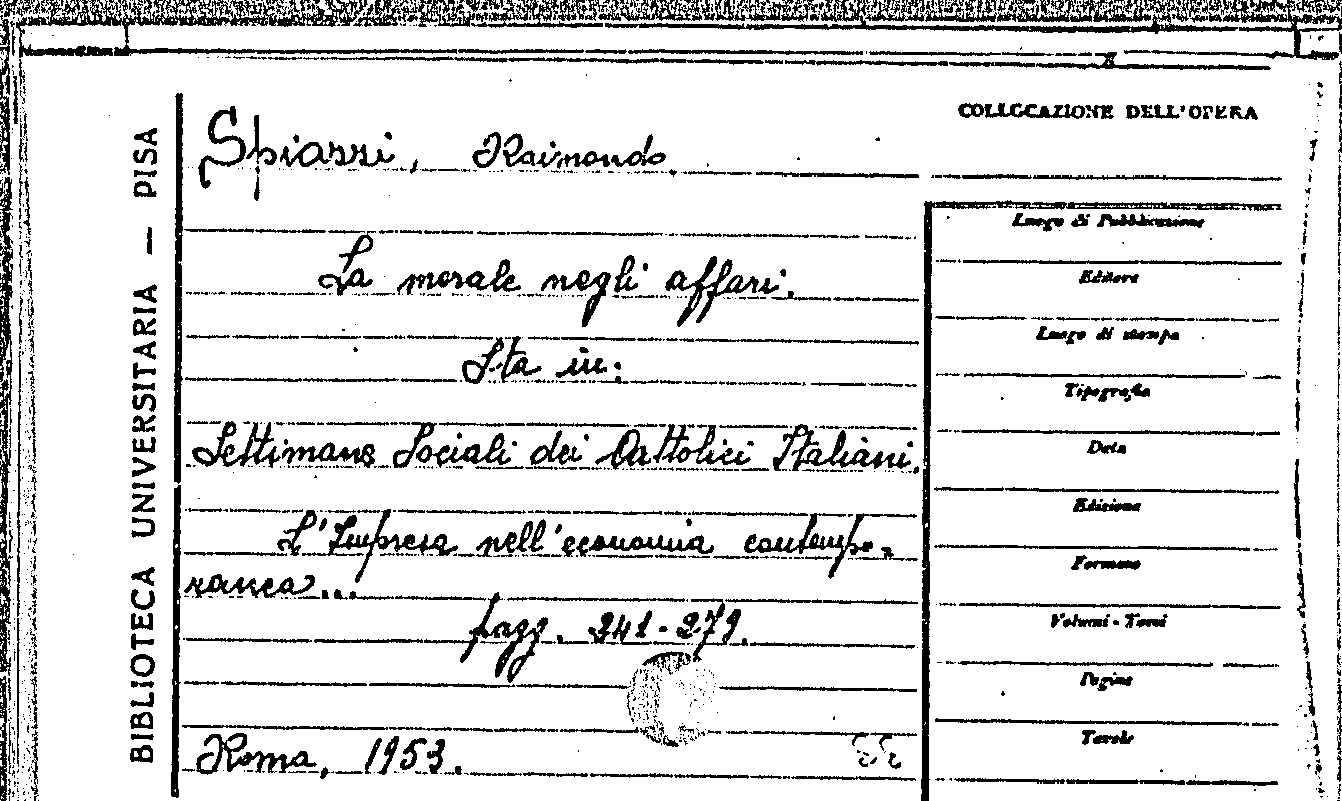 BIBLIOTECA UNIVERSITARIA — PISA
COLLOCAZIONE DELL'OPERA
Spiazzi, Raimondo.
La morale negli affari.
Sta in:
Settimane Sociali dei Cattolici Italiani.
L'Impresa nell'economia contempo-
ranea...
pagg. 241-279.
Roma, 1953.
Luogo di Pubblicazione
Editore
Luogo di stampa
Tipografia
Data
Edizione
Formato
Volumi - Tomi
Pagine
Tavole